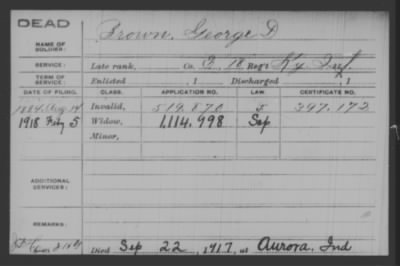 DEAD
Brown, George D
NAME OF SOLDIER:
SERVICE: Late rank, Co. 18 Reg't Ky Inf
TERM OF SERVICE: Enlisted , 1 Discharged , 1
DATE OF FILING. CLASS. APPLICATION NO. LAW. CERTIFICATE NO.
1884 Aug 14 Invalid, 519.870 397.172
1918 Feby 5 Widow, 1,114.998 Sep
Minor,
ADDITIONAL SERVICES:
REMARKS:
Died Sep 22, 1917, at Aurora, Ind